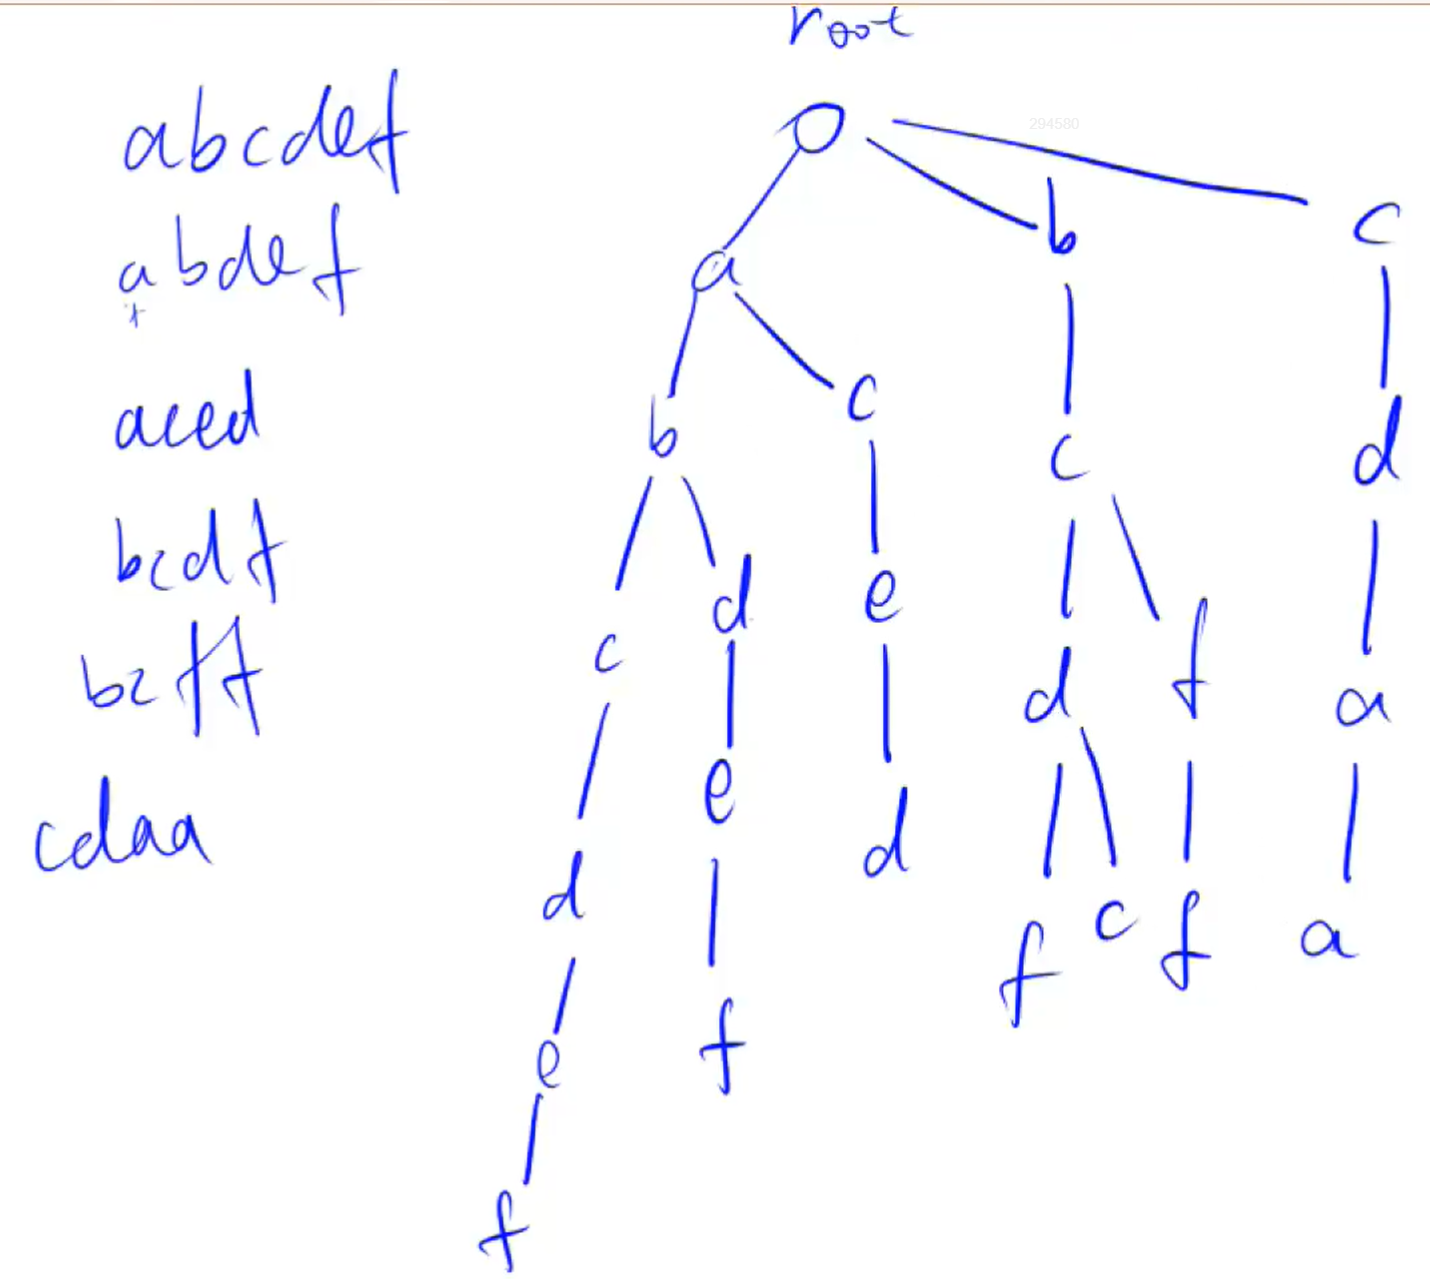 root
abcdef
abdef
aced
bcdf
bcff
cdaa
294580
a b c
b c c d
c d e d f a
d e d f c f a
e f
f